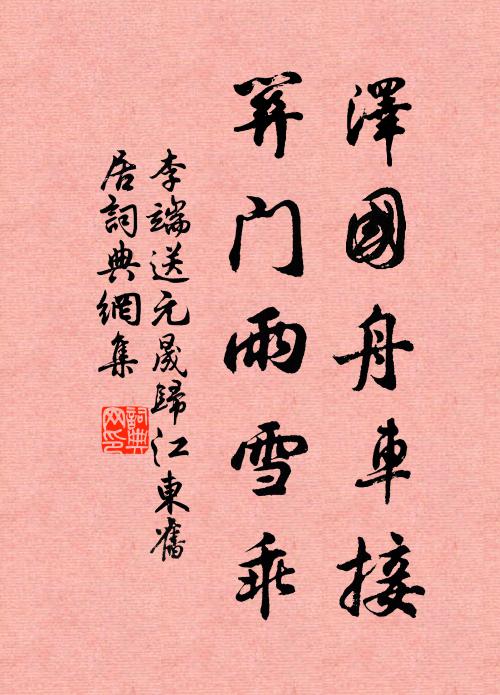 澤國舟車接
關门雨雪乖
李端送元晟歸江東舊
居詞典網集
詞典
网印